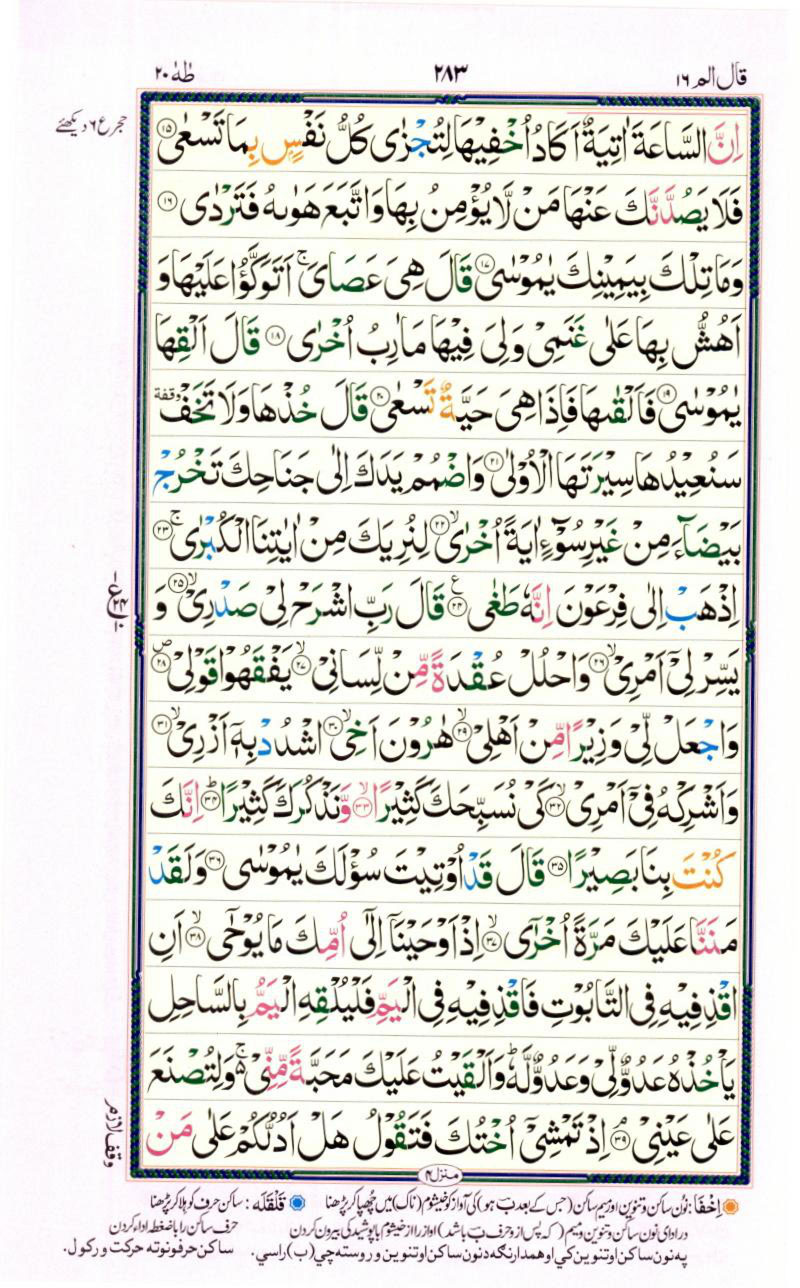 قال الم ١٦ ٢٨٣ طٰهٰ ٢٠
اِنَّ السَّاعَةَ اٰتِيَةٌ اَكَادُ اُخْفِيْهَا لِتُجْزٰى كُلُّ نَفْسٍۢ بِمَا تَسْعٰى ﴿١٥﴾
فَلَا يَصُدَّنَّكَ عَنْهَا مَنْ لَّا يُؤْمِنُ بِهَا وَاتَّبَعَ هَوٰىهُ فَتَرْدٰى ﴿١٦﴾
وَمَا تِلْكَ بِيَمِيْنِكَ يٰمُوْسٰى ﴿١٧﴾ قَالَ هِىَ عَصَاىَ ۚ اَتَوَكَّؤُا عَلَيْهَا وَ
اَهُشُّ بِهَا عَلٰى غَنَمِىْ وَلِىَ فِيْهَا مَاٰرِبُ اُخْرٰى ﴿١٨﴾ قَالَ اَلْقِهَا
يٰمُوْسٰى ﴿١٩﴾ فَاَلْقٰىهَا فَاِذَا هِىَ حَيَّةٌ تَسْعٰى ﴿٢٠﴾ قَالَ خُذْهَا وَلَا تَخَفْ وقفة
سَنُعِيْدُهَا سِيْرَتَهَا الْاُوْلٰى ﴿٢١﴾ وَاضْمُمْ يَدَكَ اِلٰى جَنَاحِكَ تَخْرُجْ
بَيْضَآءَ مِنْ غَيْرِ سُوْٓءٍ اٰيَةً اُخْرٰى ۙ﴿٢٢﴾ لِنُرِيَكَ مِنْ اٰيٰتِنَا الْكُبْرٰى ۚ﴿٢٣﴾
اِذْهَبْ اِلٰى فِرْعَوْنَ اِنَّهٗ طَغٰى ﴿٢٤﴾ ع قَالَ رَبِّ اشْرَحْ لِىْ صَدْرِىْ ۙ﴿٢٥﴾ وَ
يَسِّرْ لِىْٓ اَمْرِىْ ۙ﴿٢٦﴾ وَاحْلُلْ عُقْدَةً مِّنْ لِّسَانِىْ ۙ﴿٢٧﴾ يَفْقَهُوْا قَوْلِىْ ۖ﴿٢٨﴾
وَاجْعَلْ لِّىْ وَزِيْرًا مِّنْ اَهْلِىْ ۙ﴿٢٩﴾ هٰرُوْنَ اَخِى ۙ﴿٣٠﴾ اشْدُدْ بِهٖٓ اَزْرِىْ ۙ﴿٣١﴾
وَاَشْرِكْهُ فِىْٓ اَمْرِىْ ۙ﴿٣٢﴾ كَىْ نُسَبِّحَكَ كَثِيْرًا ۙ﴿٣٣﴾ وَّنَذْكُرَكَ كَثِيْرًا ؕ﴿٣٤﴾ اِنَّكَ
كُنْتَ بِنَا بَصِيْرًا ﴿٣٥﴾ قَالَ قَدْ اُوْتِيْتَ سُؤْلَكَ يٰمُوْسٰى ﴿٣٦﴾ وَلَقَدْ
مَنَنَّا عَلَيْكَ مَرَّةً اُخْرٰٓى ۙ﴿٣٧﴾ اِذْ اَوْحَيْنَآ اِلٰٓى اُمِّكَ مَا يُوْحٰٓى ۙ﴿٣٨﴾ اَنِ
اقْذِفِيْهِ فِى التَّابُوْتِ فَاقْذِفِيْهِ فِى الْيَمِّ فَلْيُلْقِهِ الْيَمُّ بِالسَّاحِلِ
يَاْخُذْهُ عَدُوٌّ لِّىْ وَعَدُوٌّ لَّهٗ ؕ وَاَلْقَيْتُ عَلَيْكَ مَحَبَّةً مِّنِّىْ ۚ۬ وَلِتُصْنَعَ
عَلٰى عَيْنِىْ ۘ﴿٣٩﴾ اِذْ تَمْشِىْٓ اُخْتُكَ فَتَقُوْلُ هَلْ اَدُلُّكُمْ عَلٰى مَنْ
حجر ع ٦ دیکھئے
وقف لازم
منزل ٤
اِخفا: نون ساکن و تنوین اور میم ساکن (جس کے بعد ب ہو) کی آواز کو خیشوم (ناک) میں چھپا کر پڑھنا قلقله: ساکن حرف کو ہلا کر پڑھنا
در ادای نون ساکن و تنوین و میم (که پس از و حرف ب باشد) آواز را از خیشوم با پوشیدگی بیرون کردن حرف ساکن را با ضغطه ادا کردن
په نون ساکن او تنوین کي او همدارنگه د نون ساکن او تنوین وروسته چي (ب) راسي. ساکن حرفونو ته حرکت ورکول.